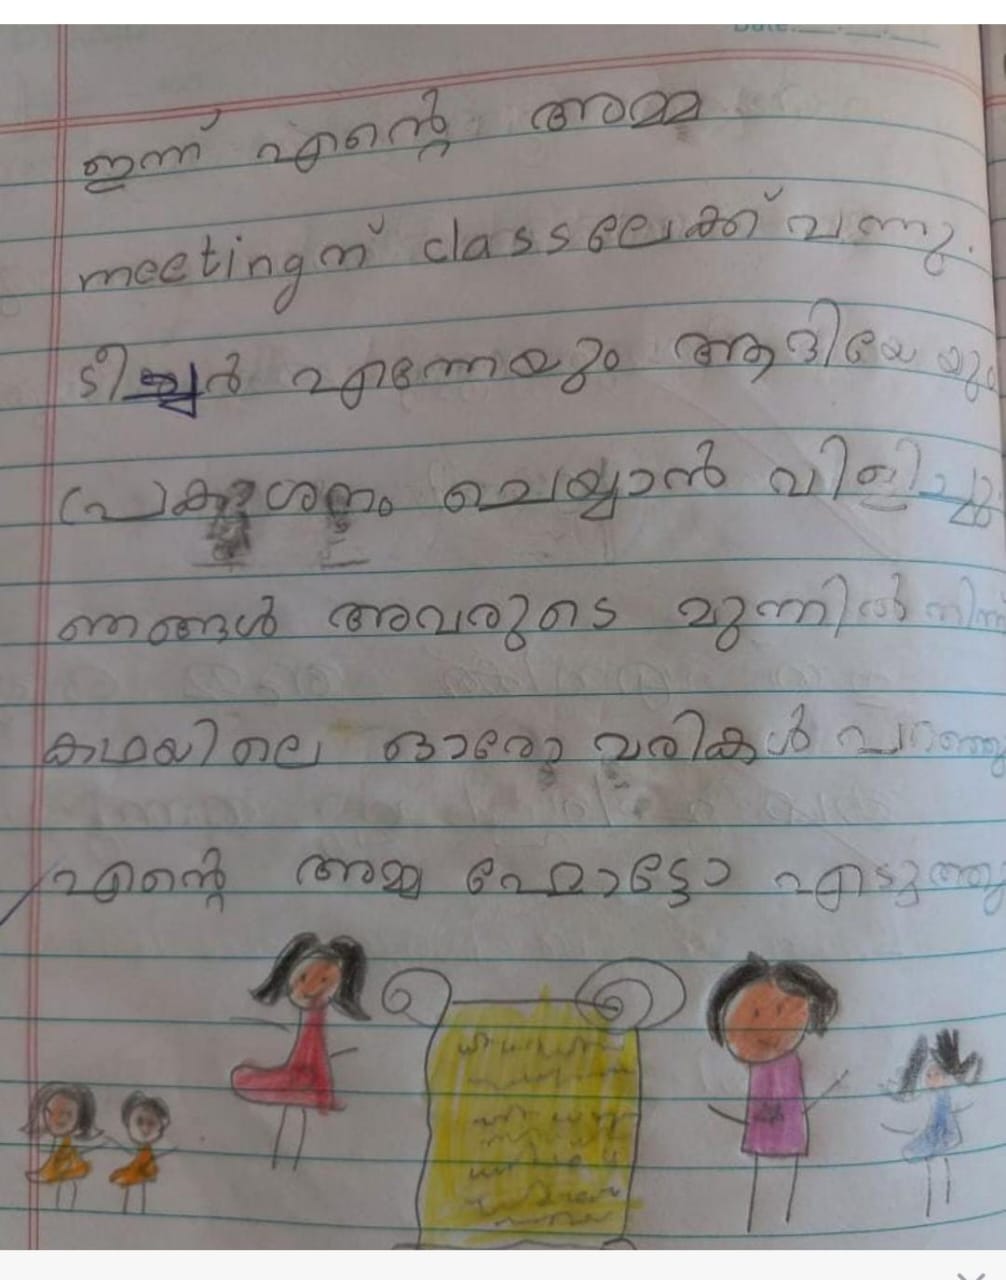 Date:
ഇന്ന് എന്റെ അമ്മ
meetingന് classലേക്ക് വന്നു.
ടീച്ചർ എന്നേയും ആദിയേയും
പ്രകാശനം ചെയ്യാൻ വിളിച്ചു
ഞങ്ങൾ അവരുടെ മുന്നിൽ നിന്ന്
കഥയിലെ ഓരോ വരികൾ പറഞ്ഞു
എന്റെ അമ്മ ഫോട്ടോ എടുത്തു